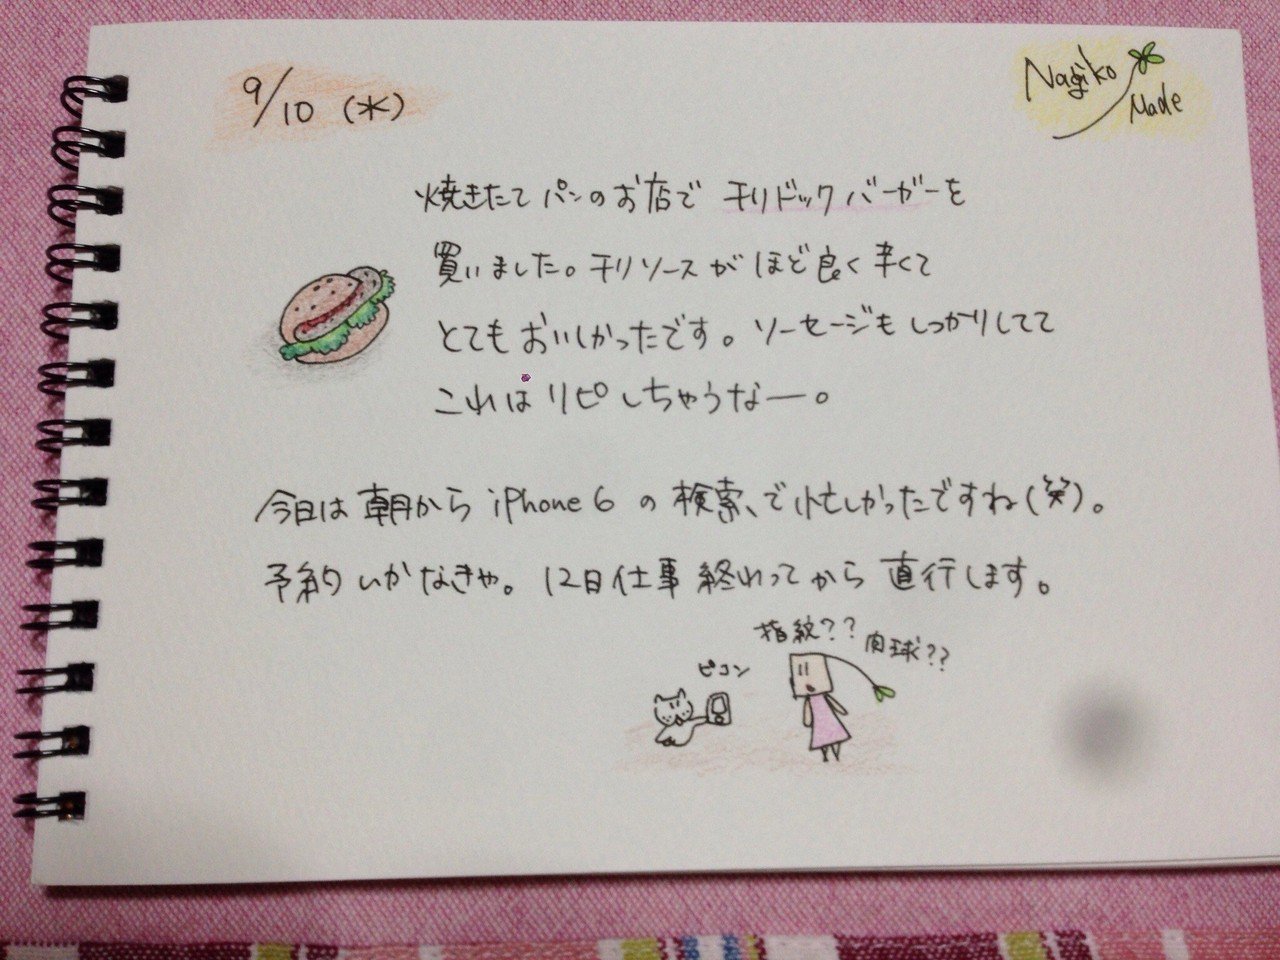 9/10 (水)
Nagiko Made
焼きたてパンのお店で チリドックバーガーを
買いました。チリソースがほど良く辛くて
とてもおいしかったです。ソーセージもしっかりしてて
これはリピしちゃうなー。
今日は朝からiPhone6の検索で忙しかったですね(笑)。
予約いかなきゃ。12日仕事終わってから直行します。
指紋??
肉球??
ピコン